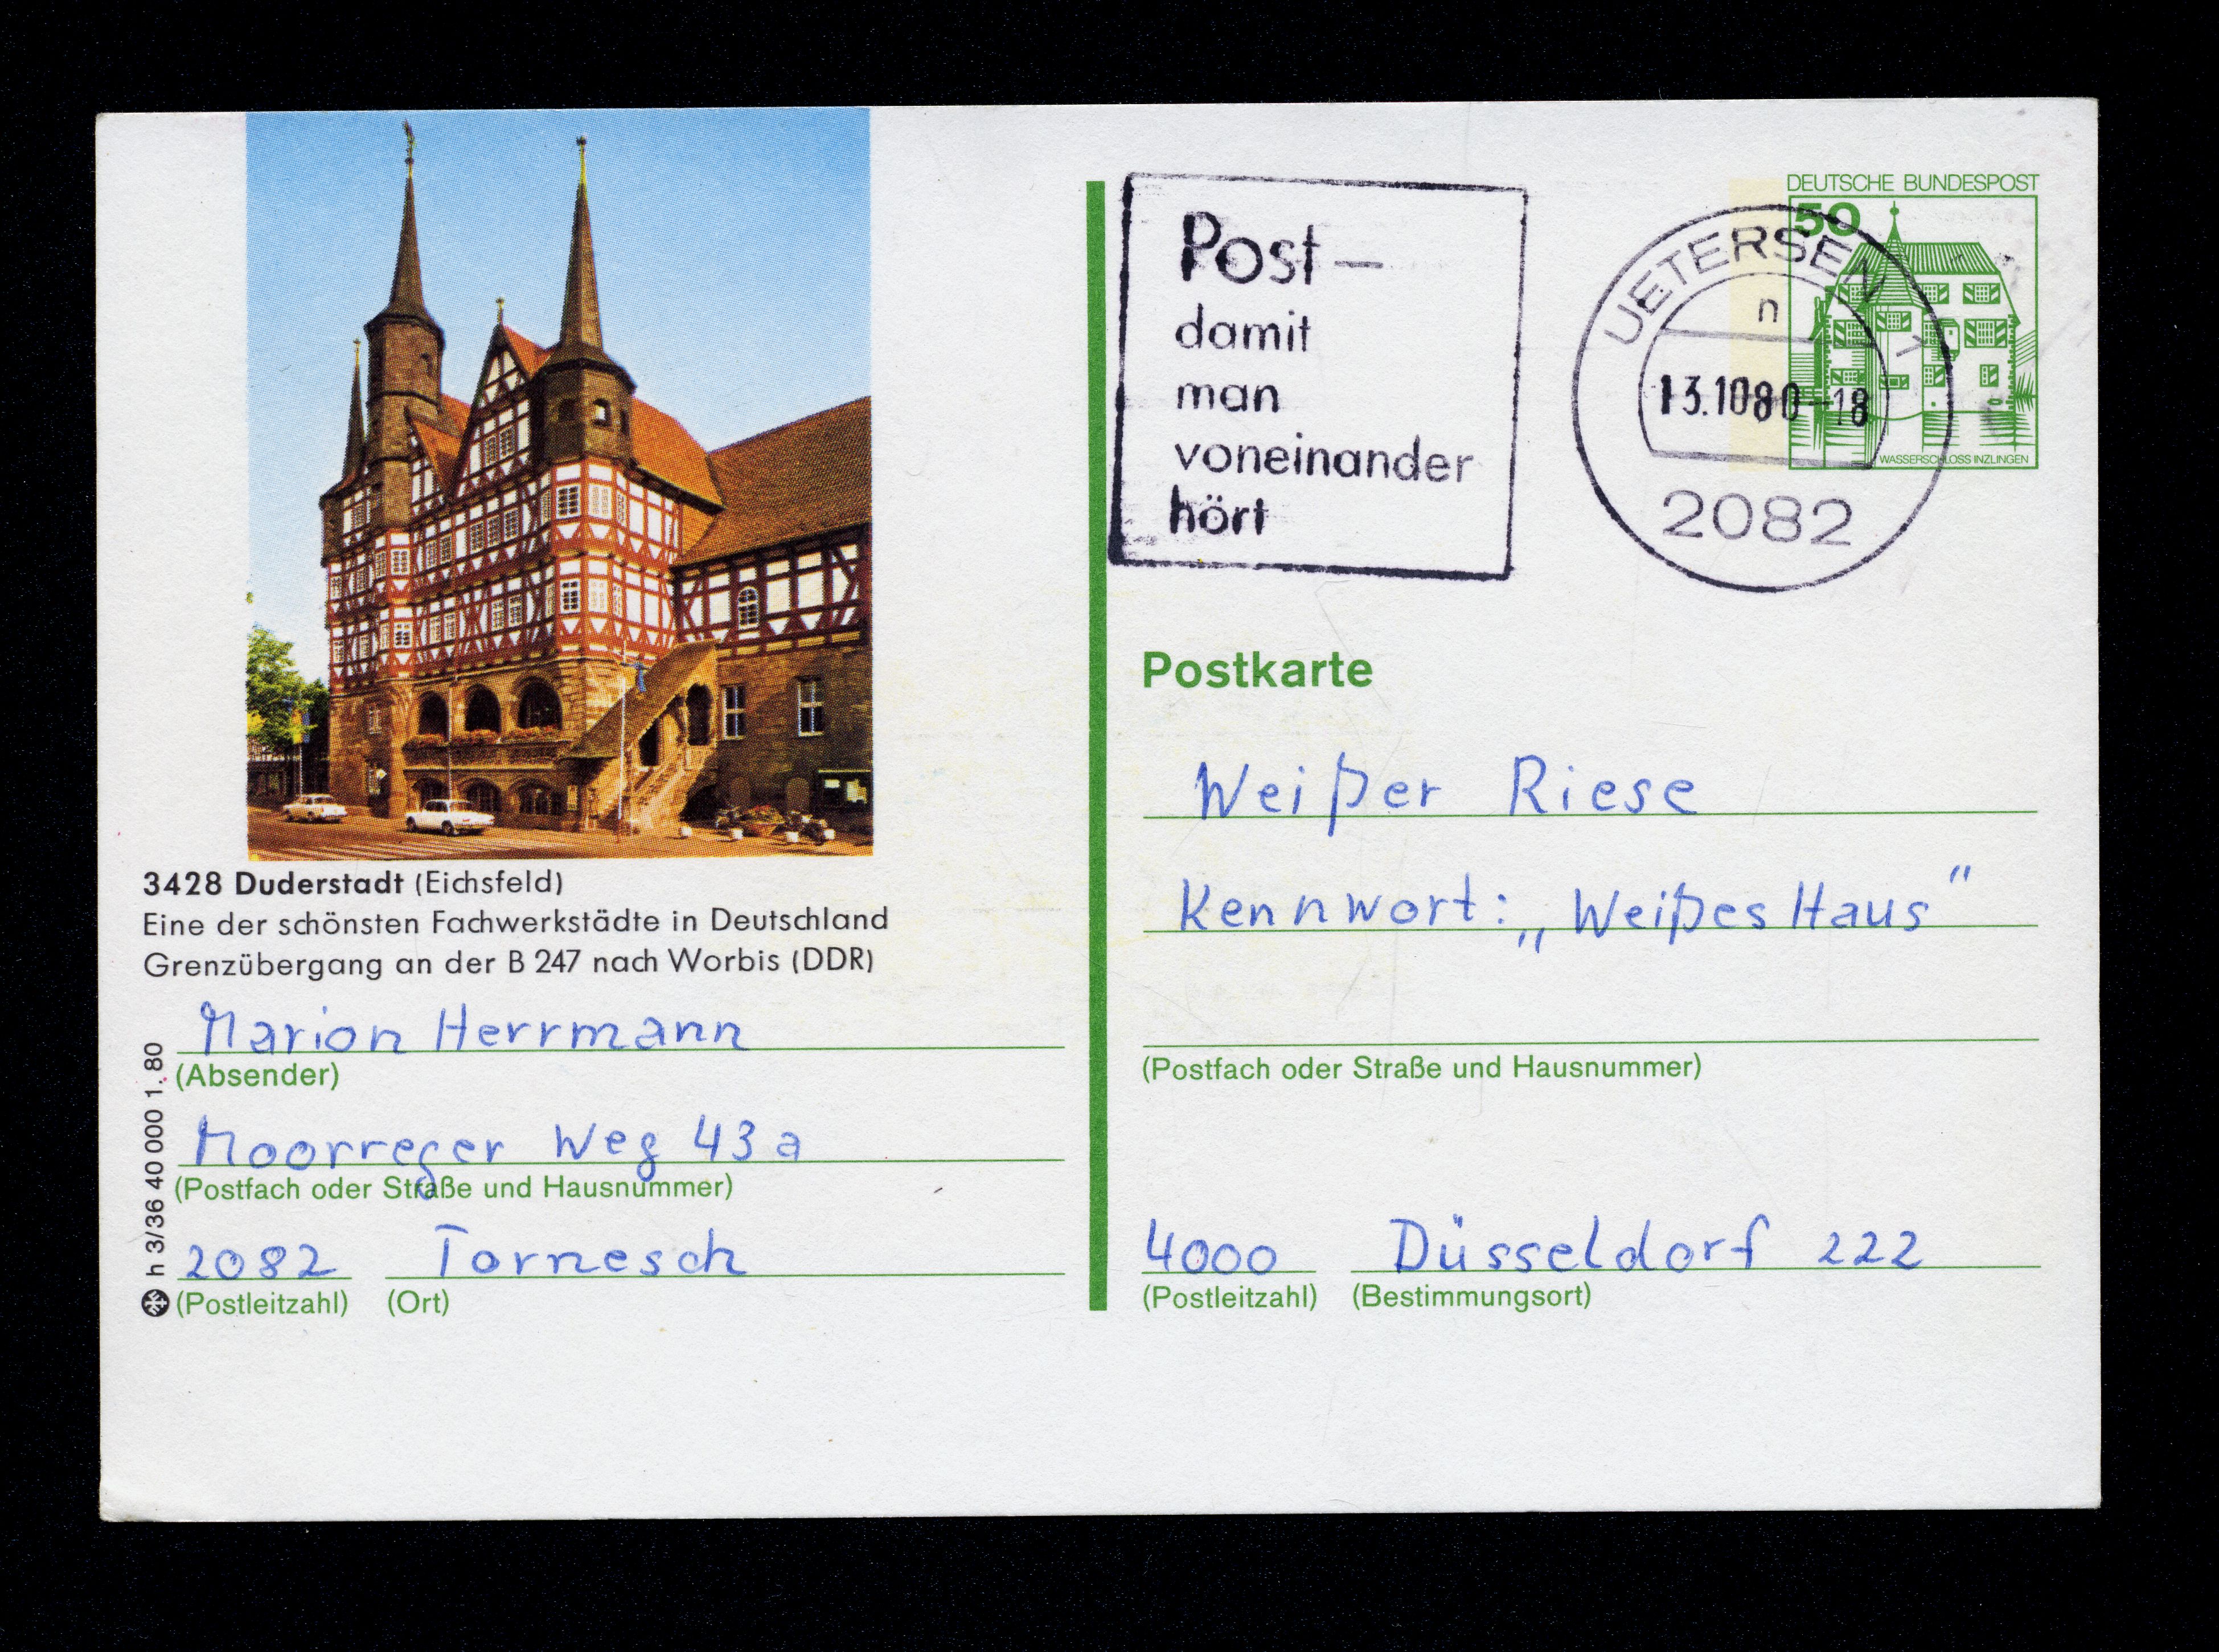 3428 Duderstadt (Eichsfeld)
Eine der schönsten Fachwerkstädte in Deutschland
Grenzübergang an der B 247 nach Worbis (DDR)
Marion Herrmann
(Absender)
Moorreger Weg 43 a
(Postfach oder Straße und Hausnummer)
2082 Tornesch
(Postleitzahl) (Ort)
h 3/36 40 000 1. 80
Post –
damit
man
voneinander
hört
UETERSEN
n
13.10.80-18
2082
DEUTSCHE BUNDESPOST
50
WASSERSCHLOSS INZLINGEN
Postkarte
Weißer Riese
Kennwort: „Weißes Haus"
(Postfach oder Straße und Hausnummer)
4000 Düsseldorf 222
(Postleitzahl) (Bestimmungsort)